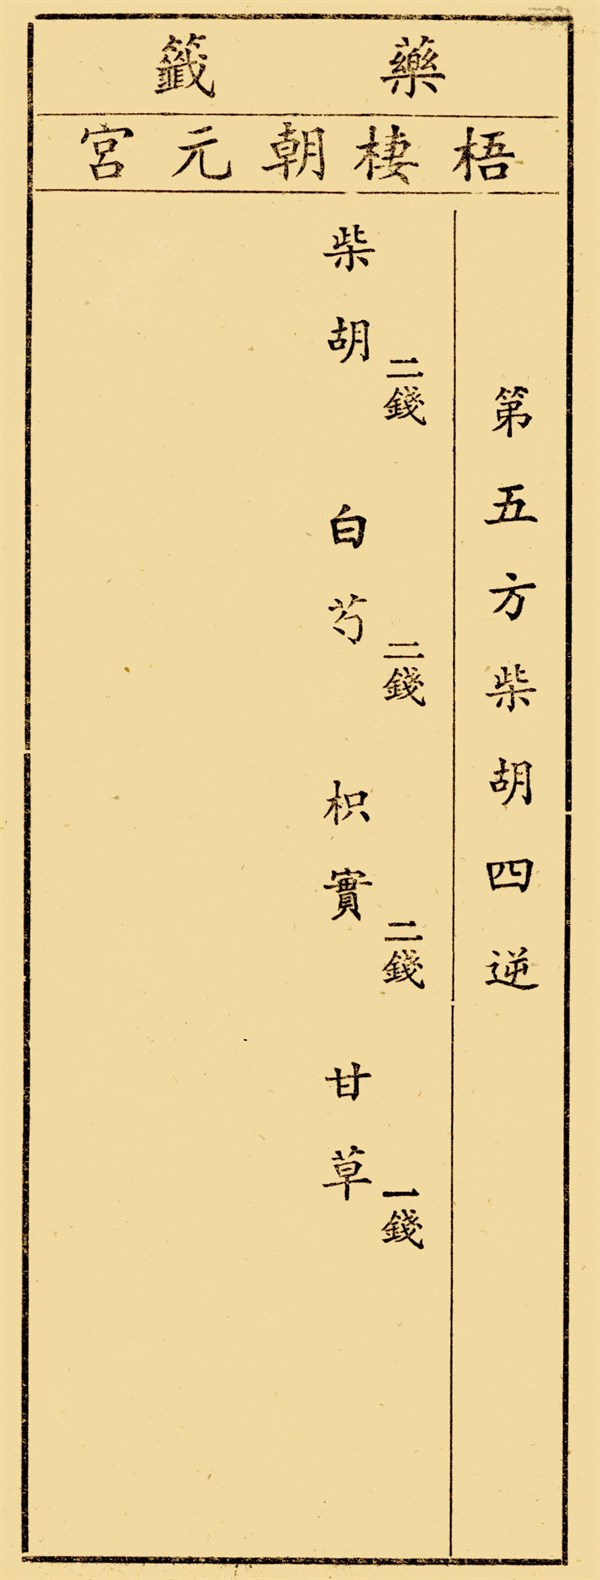 藥籤
梧棲朝元宮
第五方柴胡四逆
柴胡二錢 白芍二錢 枳實二錢 甘草一錢